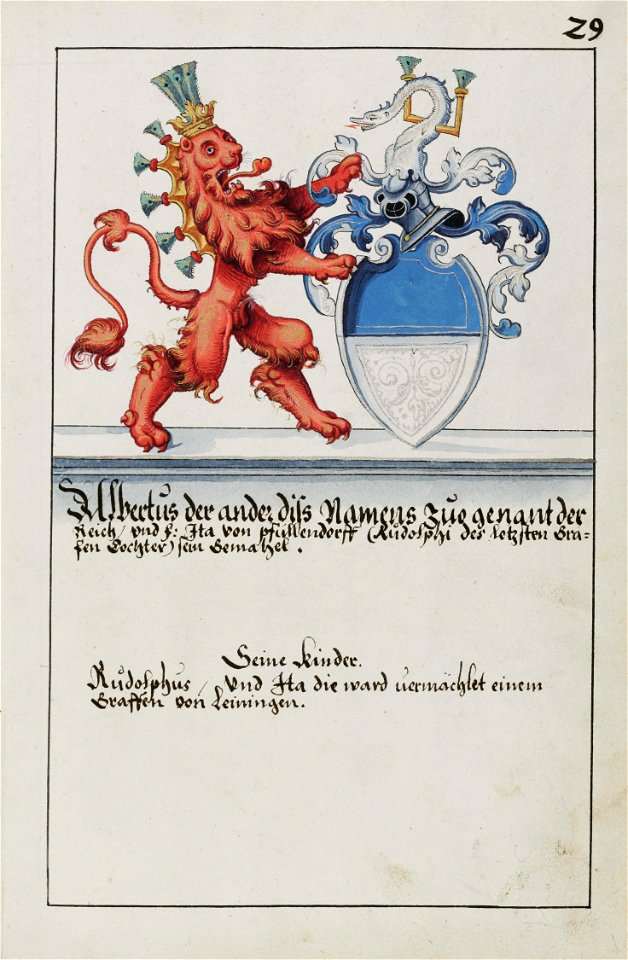 29
Albertus der ander diss Namens zuo genant der
Reich, und f: Ita von pfullendorff (Rudolphi des letzsten Gra-
fen Tochter) sein Gemahel.
Seine kinder.
Rudolphus, und Ita die ward vermächlet einem
Graffen von Leiningen.